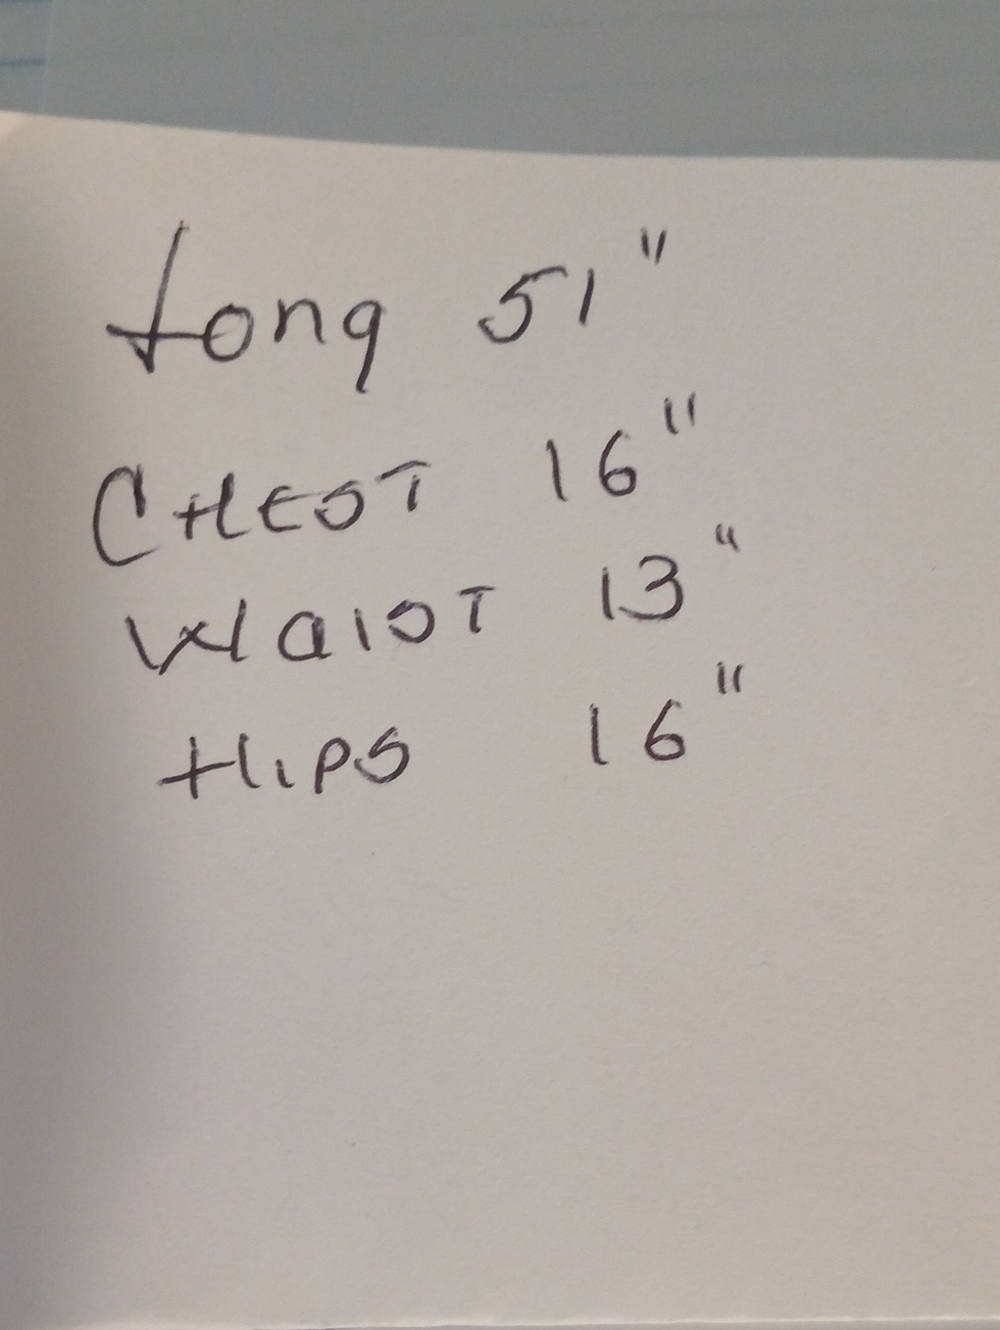 Long 51"
CHEST 16"
WaIST 13"
HIPS 16"